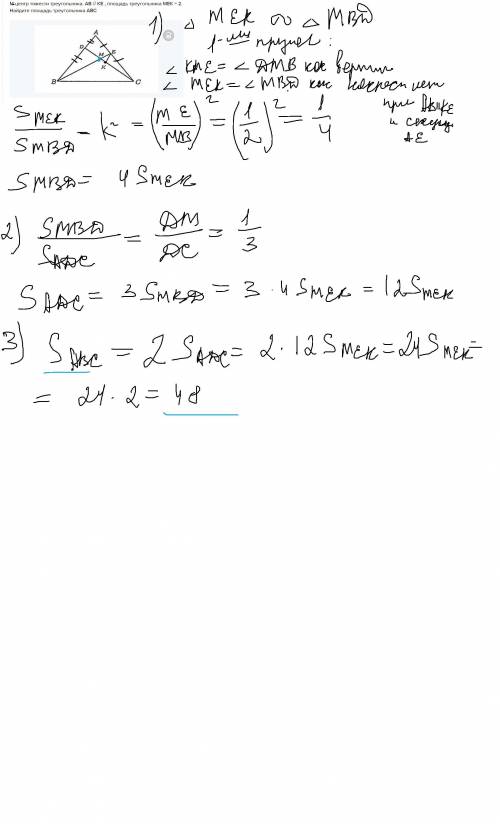 14.центр тяжести треугольника, AB || KE , площадь треугольника MEK = 2.
Найдите площадь треугольника ABC
A
D
E
M
K
B
C
1) △ MEK ∾ △ MBD
1-
∠ KME = ∠ DMB как вертик
∠ MEK = ∠ MBD как
при
и
S MEK / S MBD = k² = (ME / MB)² = (1/2)² = 1/4
S MBD = 4 S MEK
2) S MBD / S ADC = DM / DC = 1/3
S ADC = 3 S MBD = 3 · 4 S MEK = 12 S MEK
3) S ABC = 2 S ADC = 2 · 12 S MEK = 24 S MEK =
= 24 · 2 = 48